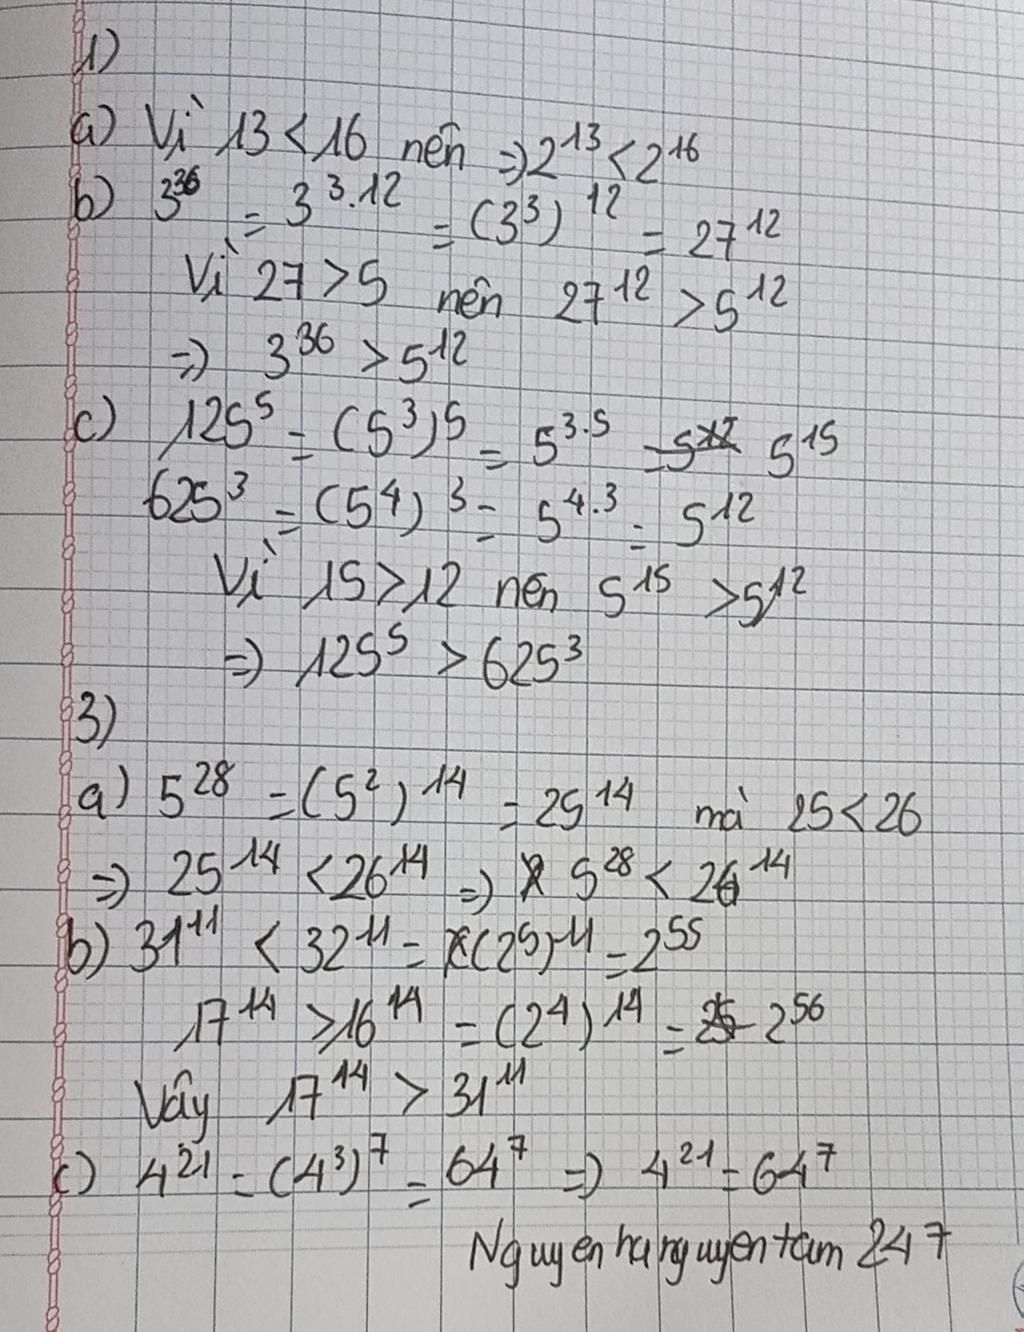 1)
a) Vì 13 < 16 nên => 2¹³ < 2¹⁶
b) 3³⁶ = 3³·¹² = (3³)¹² = 27¹²
Vì 27 > 5 nên 27¹² > 5¹²
=> 3³⁶ > 5¹²
c) 125⁵ = (5³)⁵ = 5³·⁵ = 5¹⁵
625³ = (5⁴)³ = 5⁴·³ = 5¹²
Vì 15 > 12 nên 5¹⁵ > 5¹²
=> 125⁵ > 625³
3)
a) 5²⁸ = (5²)¹⁴ = 25¹⁴ mà 25 < 26
=> 25¹⁴ < 26¹⁴ => 5²⁸ < 26¹⁴
b) 31¹¹ < 32¹¹ = (2⁵)¹¹ = 2⁵⁵
17¹⁴ > 16¹⁴ = (2⁴)¹⁴ = 2⁵⁶
Vây 17¹⁴ > 31¹¹
c) 4²¹ = (4³)⁷ = 64⁷ => 4²¹ = 64⁷
Nguyenhanguyentam247